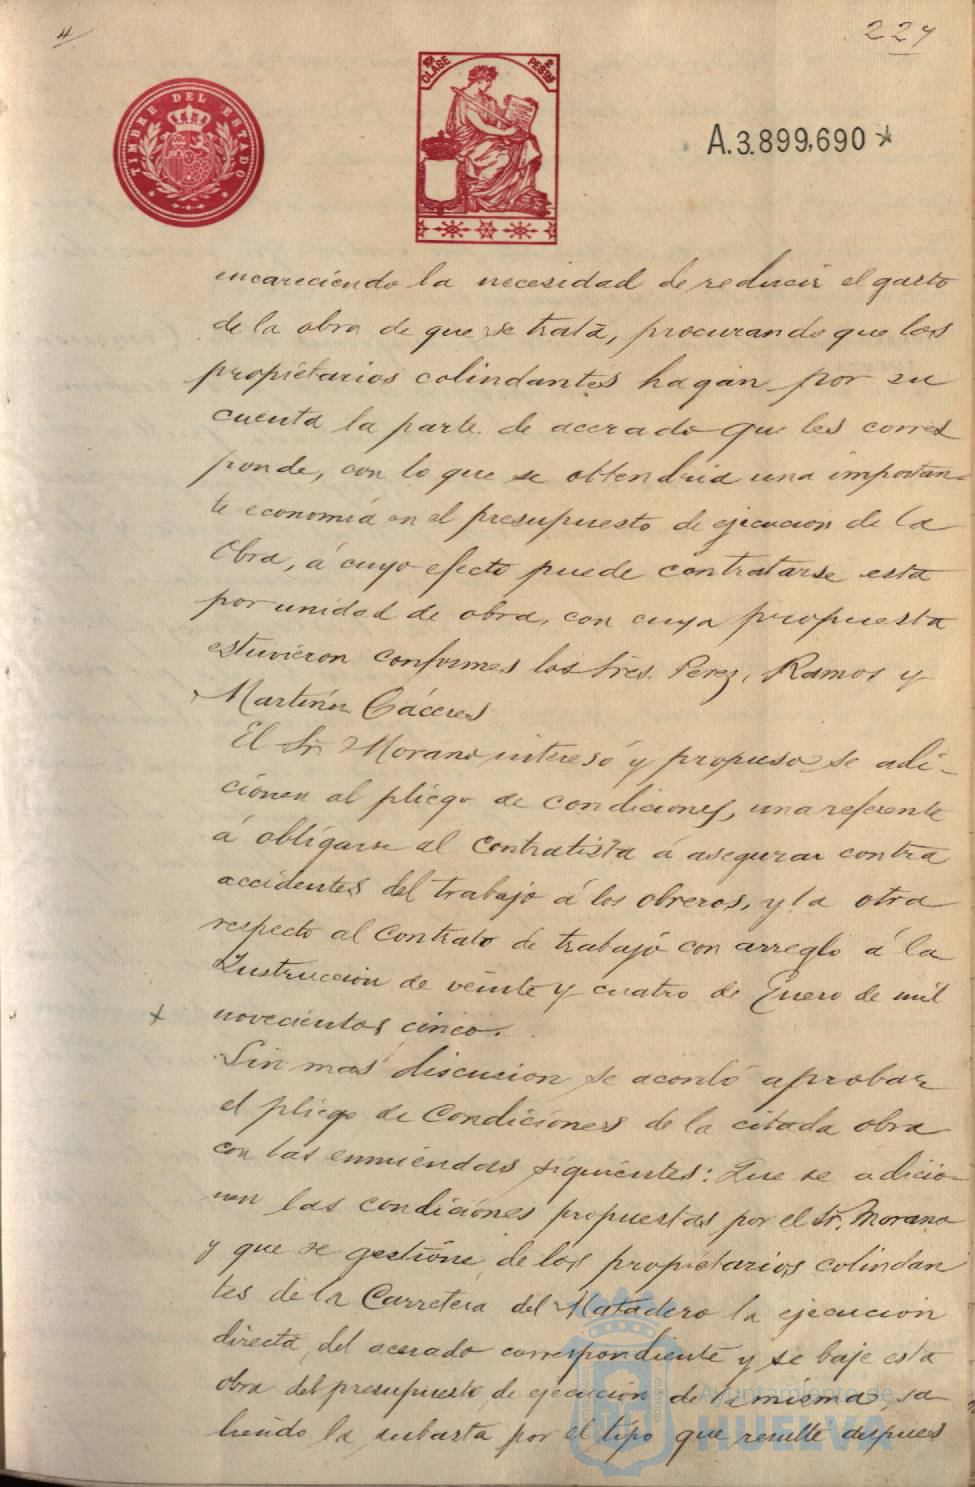 4
227
TIMBRE DEL ESTADO
CLASE
2 PESTAS
A.3.899,690
encareciendo la necesidad de reducir el gasto
de la obra de que se trata, procurando que los
propietarios colindantes hagan por su
cuenta la parte de acerado que les corres
ponde, con lo que se obtendria una importan-
te economia en el presupuesto de ejecucion de la
Obra, á cuyo efecto puede contratarse esta
por unidad de obra, con cuya propuesta
estuvieron conformes los Sres. Perez, Ramos y
Martinez Cáceres
El Sr. Morano interesó y propuso se adi-
cionen al pliego de condiciones, una referente
á obligarse al contratista á asegurar contra
accidentes del trabajo á los obreros, y la otra
respecto al Contrato de trabajo con arreglo á la
Instruccion de veinte y cuatro de Enero de mil
novecientos cinco.
Sin mas discusion se acordó aprobar
el pliego de Condiciones de la citada obra
con las enmiendas siguientes: Que se adicio
nen las condiciones propuestas por el Sr. Morano
y que se gestione de los propietarios colindan
tes de la Carretera del Matadero la ejecucion
directa del acerado correspondiente y se baje esta
obra del presupuesto de ejecucion de la misma, sa
liendo la subasta por el tipo que resulte despues
Ayuntamiento de
HUELVA